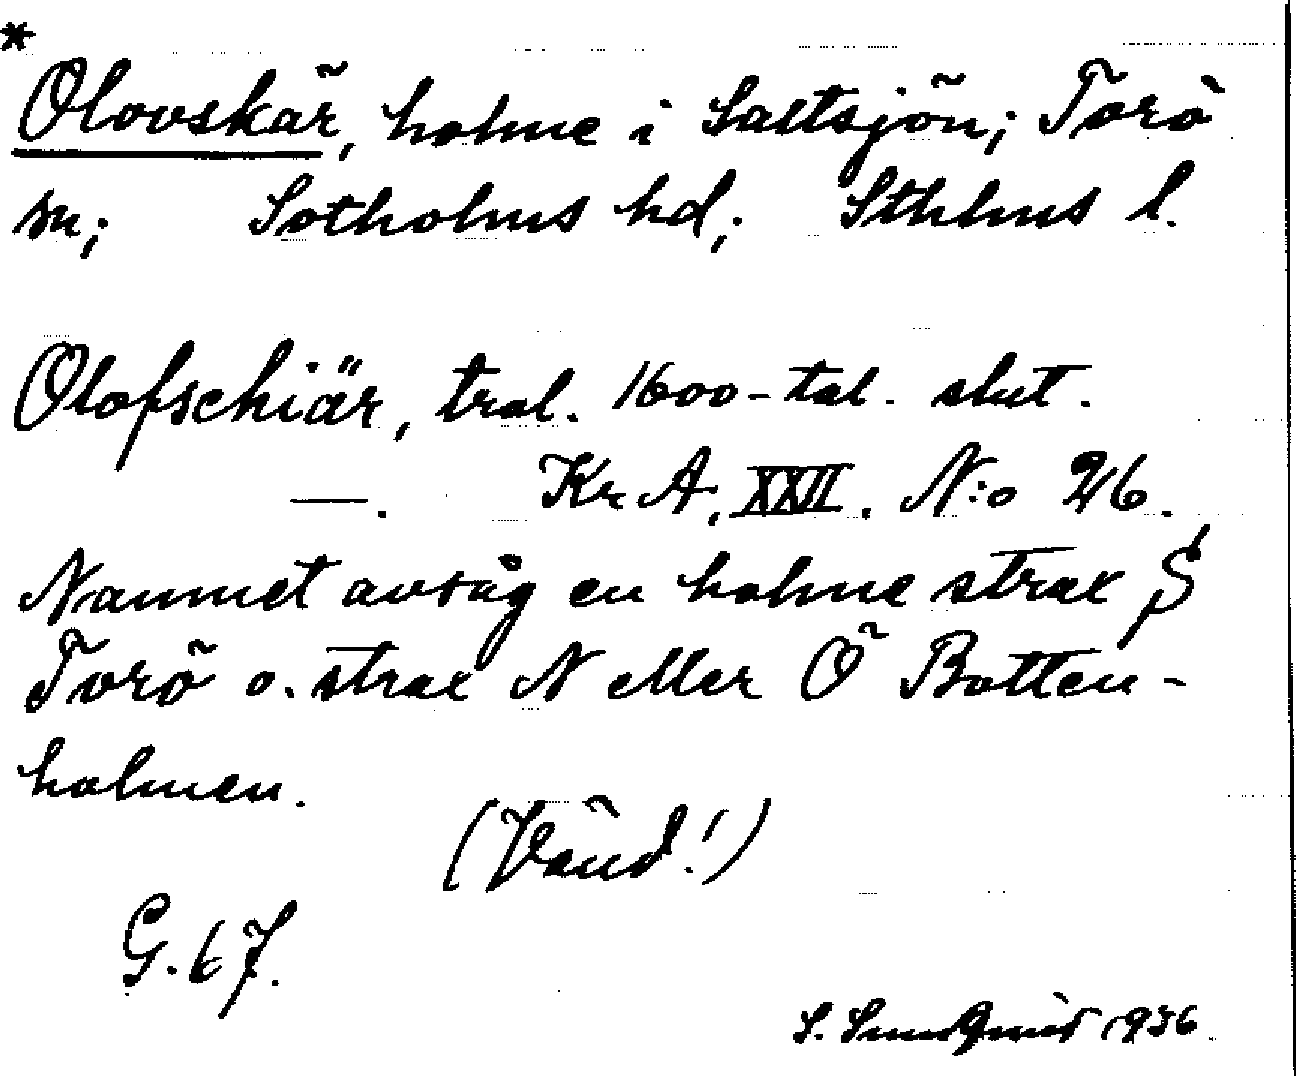 *
Olovskär, holme i Saltsjön; Torö
sn; Sotholms hd; Sthlms l.
Olofschiär, trol. 1600-tal. slut.
—. Kr. A, XXII. N:o 26.
Namnet avsåg en holme strax S
Torö o. strax N eller Ö Botten-
holmen.
(Vänd!)
G. 67.
S. Sundqvist 1936.